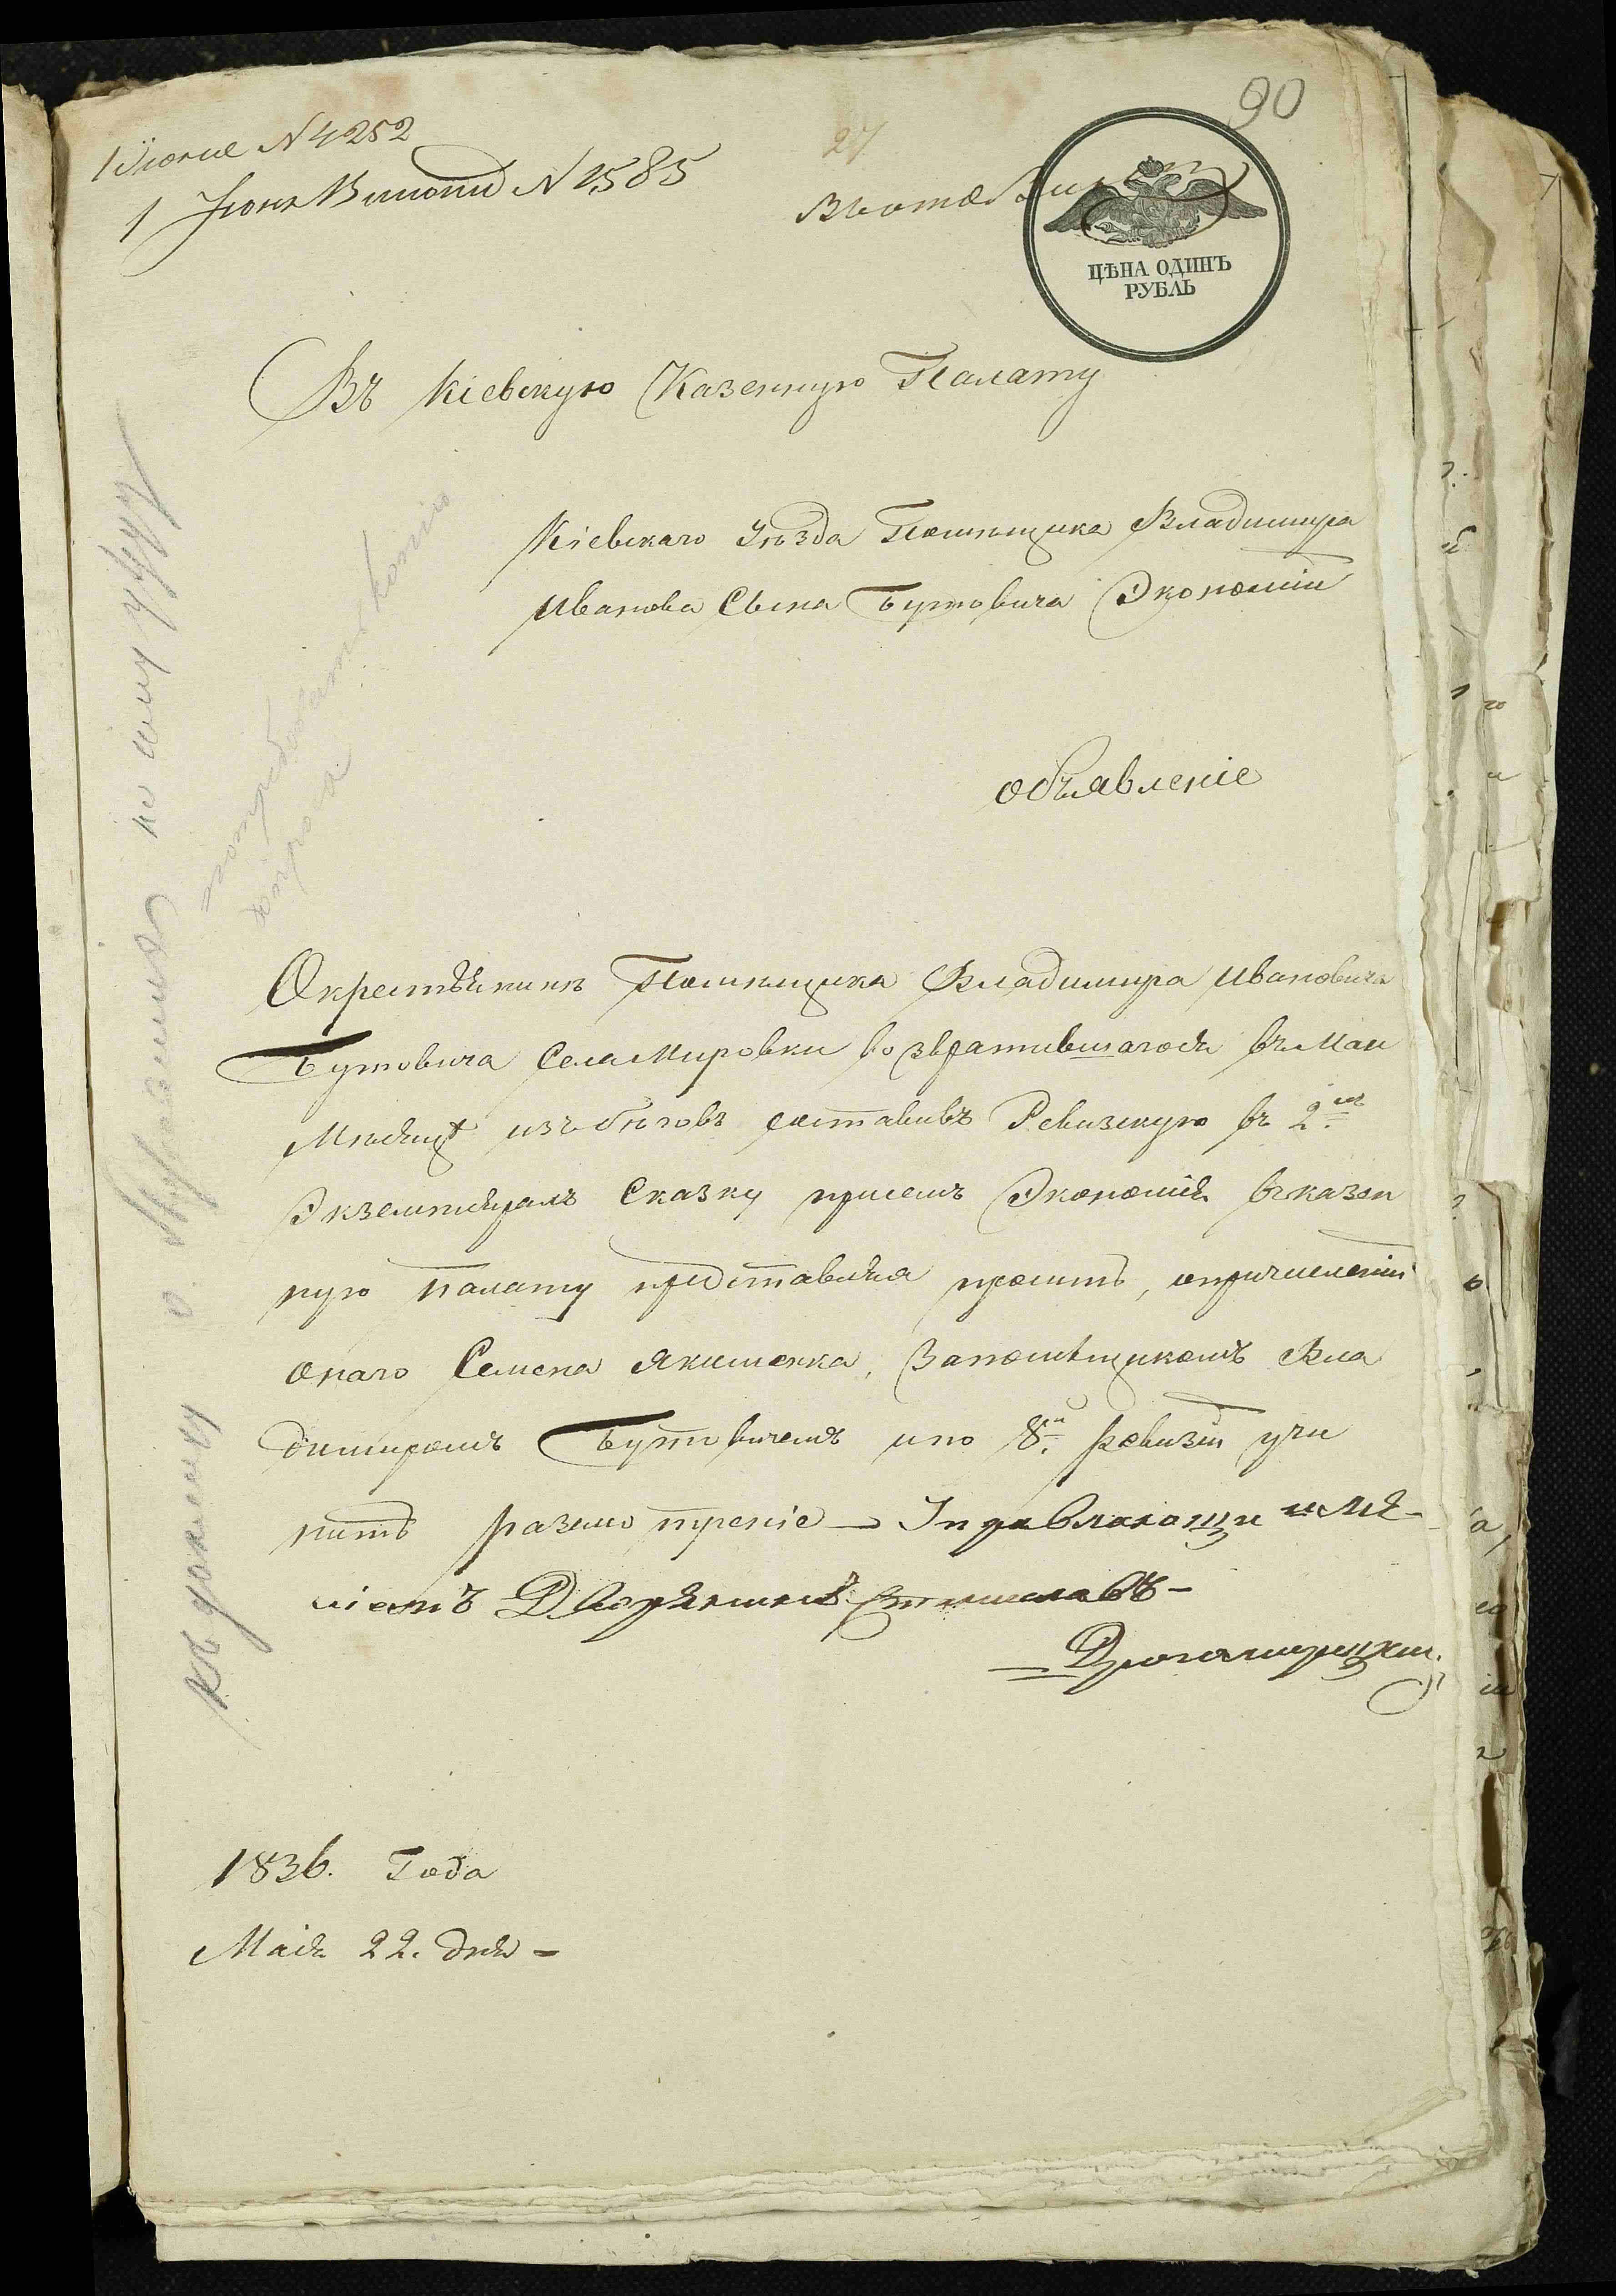 90
1 Июня N 4252
1 Июня N 1585
27
ЦѢНА ОДИНЪ
РУБЛЬ
Въ Кіевскую Казенную Палату
Кіевскаго Уѣзда Помѣщика Владимира
Иванова Сына Бутовича Экономіи
объявленіе
Окрестьянинѣ Помѣщика Владимира Ивановича
Бутовича Села Мировки возвратившагося въ Маи
Мѣсяцѣ изъ бѣговъ составивъ Ревизскую въ 2хъ
Экземплярахъ Сказку при семъ Экономія въ казен
ную палату представляя проситъ, опричисленіи
онаго Семена Якименка, Запомѣщикомъ Вла
димиромъ Бутовичемъ ипо 8й ревизіи учи
нить разсмотреніе — Управляющи имѣ-
ніемъ Дворянинъ
1836. Года
Маія 22. дня -
потребовать копію
къ докладу о